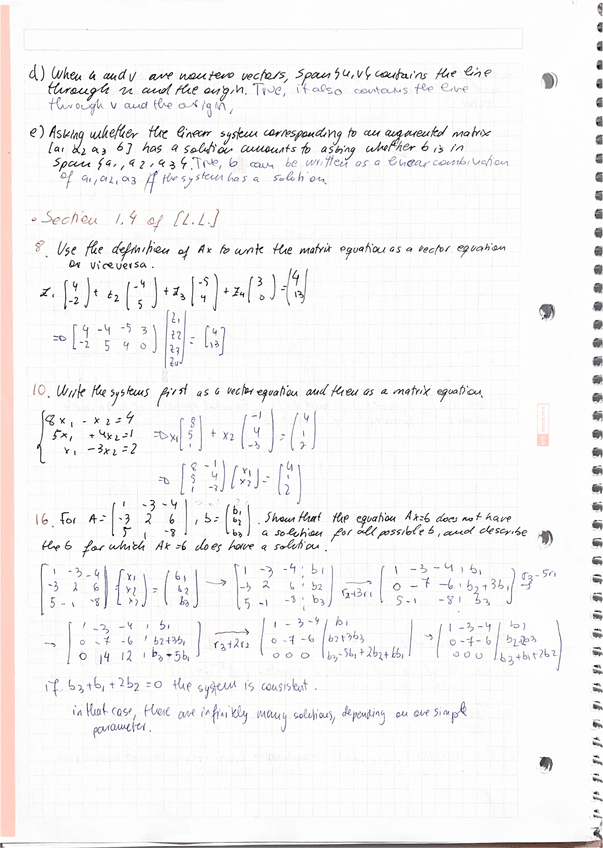 d) When u and v are nonzero vectors, span {u,v} contains the line
through u and the origin. True, it also contains the line
through v and the origin,
e) Asking whether the linear system corresponding to an augmented matrix
[a1 a2 a3 b] has a solution amounts to asking whether b is in
span {a1, a2, a3}. True, b can be written as a linear combination
of a1, a2, a3 if the system has a solution.
• Section 1.4 of [L.L.]
8. Use the definition of Ax to write the matrix equation as a vector equation
or viceversa.
z1 [4 -2] + z2 [-4 5] + z3 [-5 4] + z4 [3 0] = [4 13]
=> [4 -4 -5 3 -2 5 4 0] [z1 z2 z3 z4] = [4 13]
10. Write the systems first as a vector equation and then as a matrix equation.
{ 8x1 - x2 = 4
5x1 + 4x2 = 1 => x1 [8 5 1] + x2 [-1 4 -3] = [4 1 2]
x1 - 3x2 = 2
=> [8 -1 5 4 1 -3] [x1 x2] = [4 1 2]
16. For A = [1 -3 -4 -3 2 6 5 -1 -8], b = [b1 b2 b3]. Show that the equation Ax=b does not have
a solution for all possible b, and describe
the b for which Ax=b does have a solution.
[1 -3 -4 -3 2 6 5 -1 -8] [x1 x2 x3] = [b1 b2 b3] → [1 -3 -4 b1 -3 2 6 b2 5 -1 -8 b3] r2+3r1 → [1 -3 -4 b1 0 -7 -6 b2+3b1 5 -1 -8 b3] r3-5r1
→ [1 -3 -4 b1 0 -7 -6 b2+3b1 0 14 12 b3-5b1] r3+2r2 → [1 -3 -4 b1 0 -7 -6 b2+3b1 0 0 0 b3-5b1+2b2+6b1] → [1 -3 -4 b1 0 -7 -6 0 0 0 b3+b1+2b2]
if b3+b1+2b2=0 the system is consistent.
in that case, there are infinitely many solutions, depending on one simple
parameter.